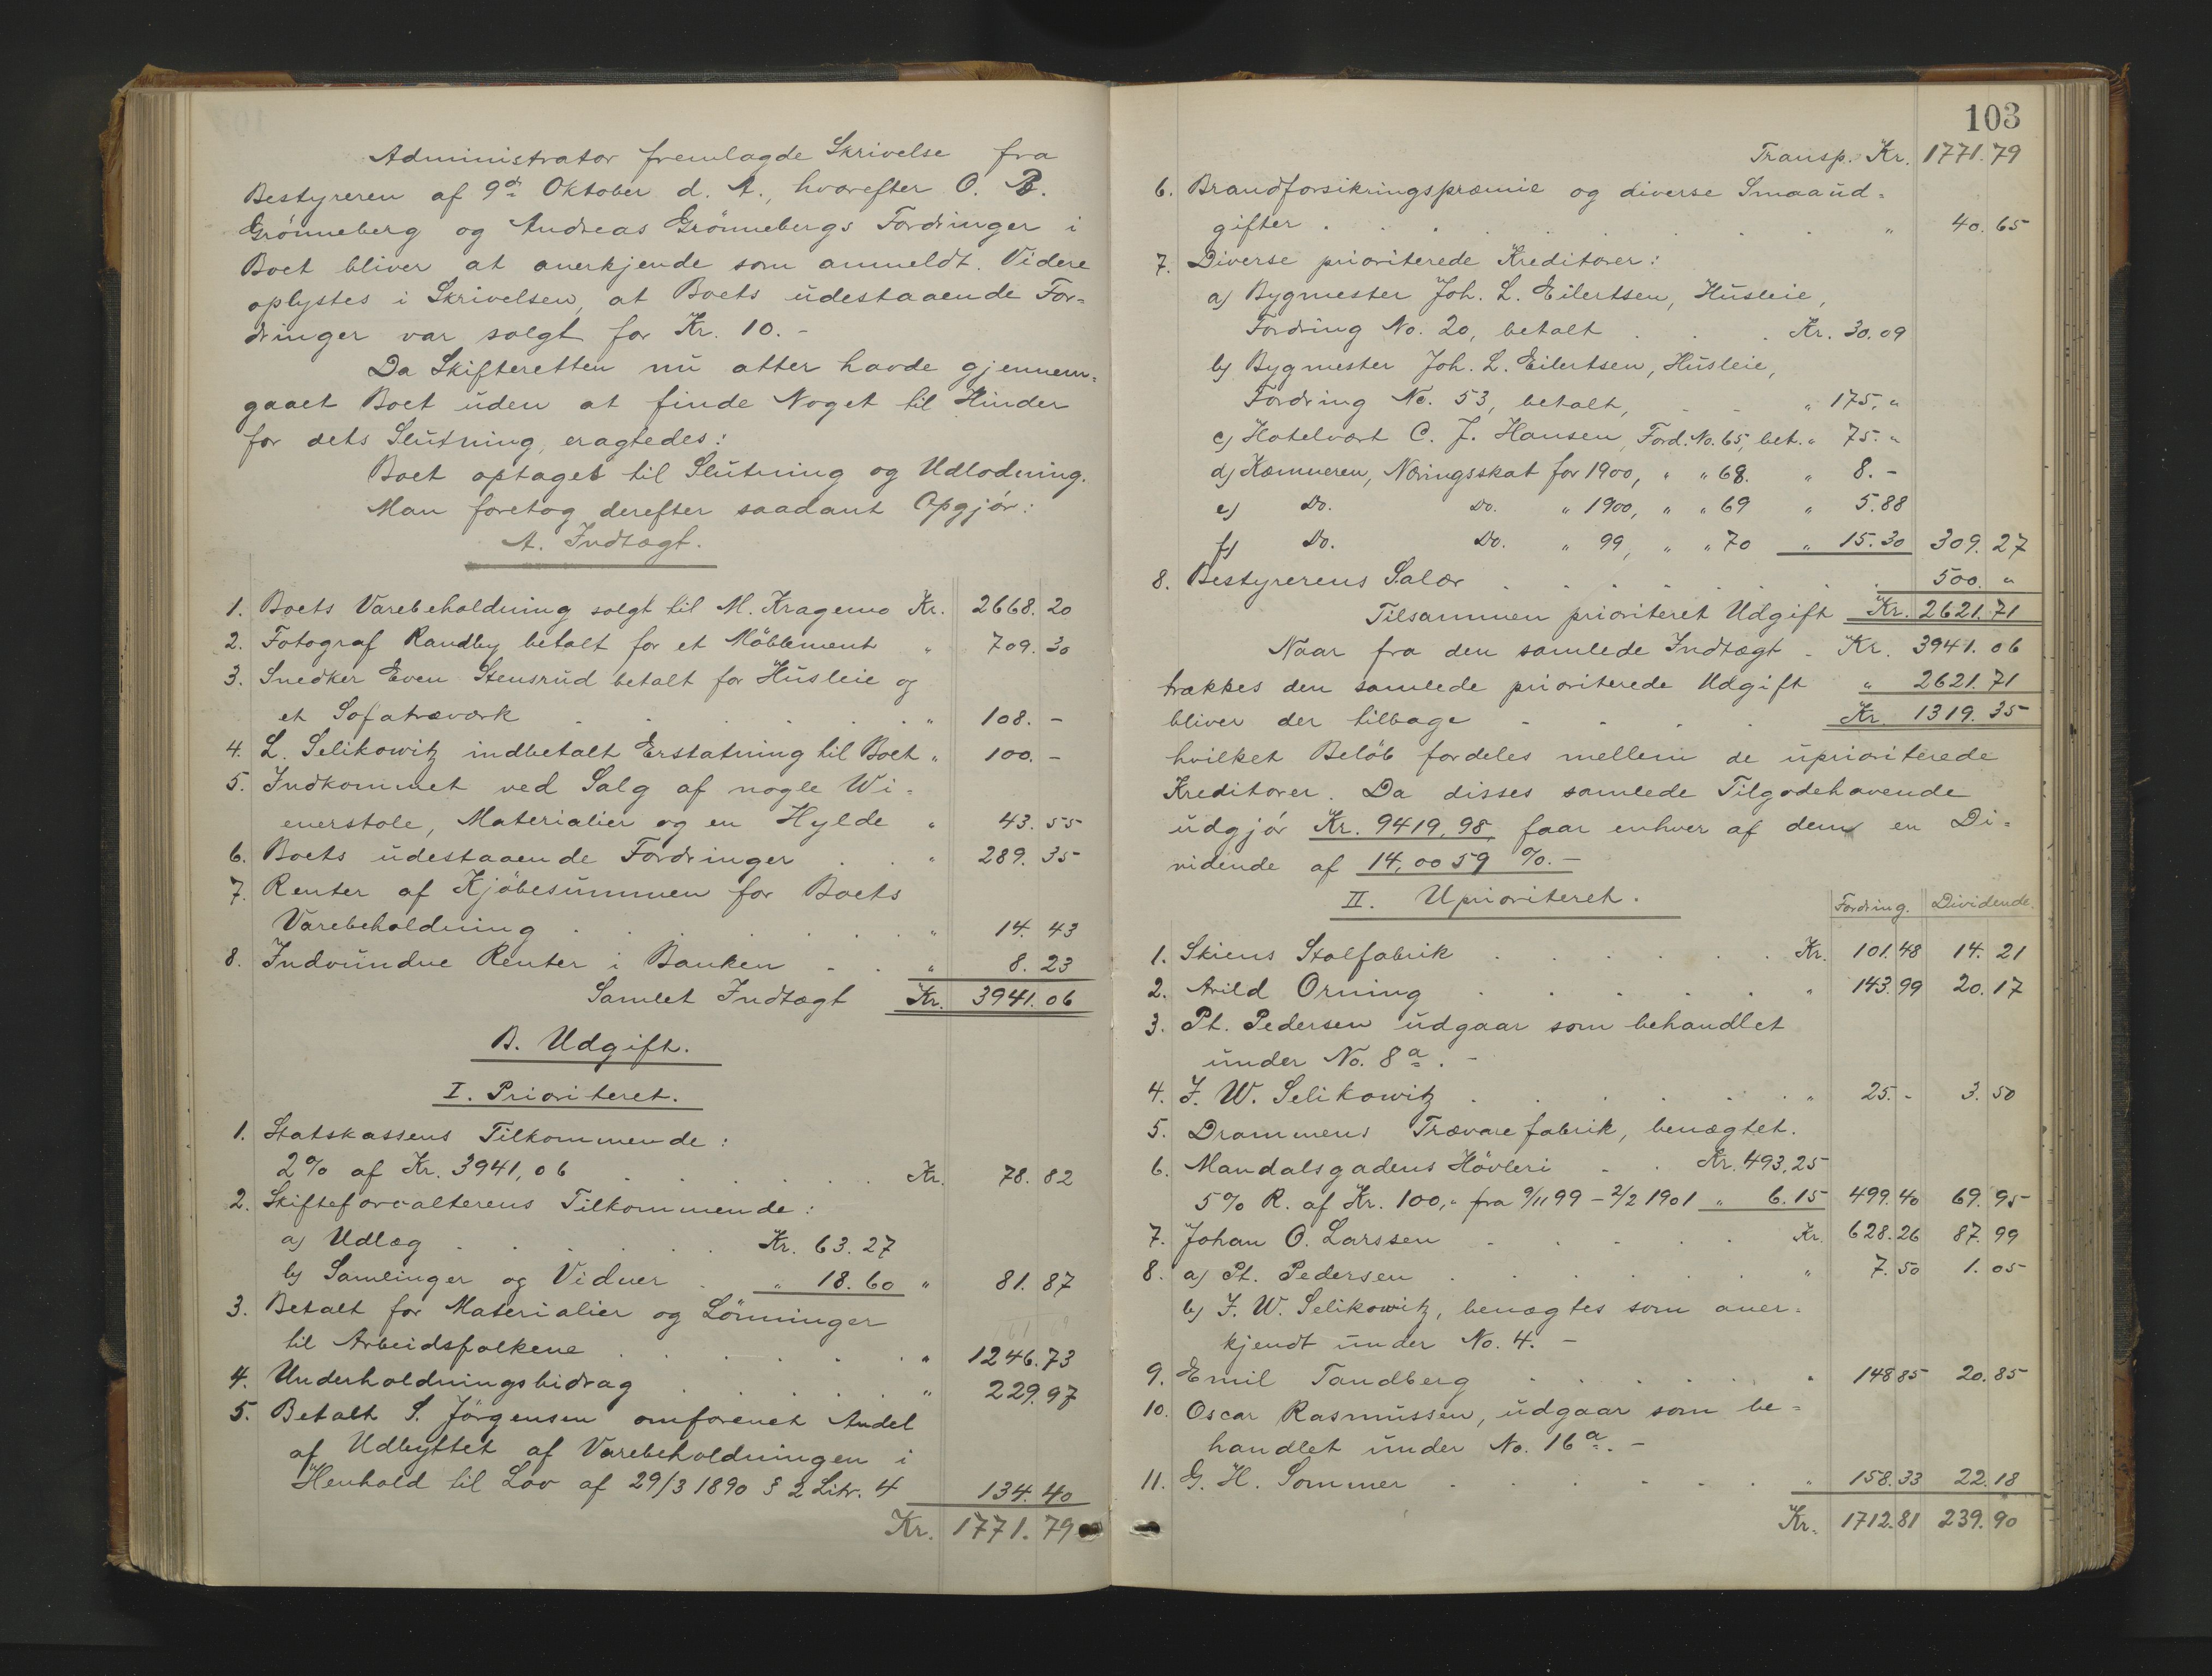 Administrator fremlagde Skrivelse fra
Bestyreren af 9de Oktober d. A., hvorefter O. B.
Grönneberg og Andreas Grönnebergs Fordringer i
Boet bliver at anerkjende som anmeldt. Videre
oplystes i Skrivelsen, at Boets udestaaende For-
dringer var solgt for Kr. 10.-
Da Skifteretten nu atter havde gjennem-
gaaet Boet uden at finde Noget til Hinder
for dets Slutning, eragtedes:
Boet optaget til Slutning og Udlodning.
Man foretog derefter saadant Opgjör:
A. Indtægt.
1. Boets Varebeholdning solgt til M. Kragemo Kr. 2668. 20
2. Fotograf Randby betalt for et Möblement " 709. 30
3. Snedker Even Stensrud betalt for Husleie og
et Sofatræværk . . . . . . " 108. -
4. L. Selikowitz indbetalt Erstatning til Boet " 100. -
5. Indkommet ved Salg af nogle Wi-
enerstole, Materialier og en Hylde " 43. 55
6. Boets udestaaende Fordringer . . " 289. 35
7. Renter af Kjöbesummen for Boets
Varebeholdning . . . . . . " 14. 43
8. Indvundne Renter i Banken - . " 8. 23
Samlet Indtægt Kr. 3941. 06
B. Udgift.
I. Prioriteret.
1. Statskassens Tilkommende:
2% af Kr. 3941,06 . . . . . . Kr. 78. 82
2. Skifteforvalterens Tilkommende:
a) Udlæg . . . . . . Kr. 63.27
b) Samlinger og Vidner . " 18.60 " 81. 87
3. Betalt for Materialier og Lönninger
til Arbeidsfolkene . . . . . . " 1246. 73
4. Underholdningsbidrag . . . . . " 229. 97
5. Betalt S. Jörgensen omforenet Andel
af Udbyttet af Varebeholdningen i
Henhold til Lov af 29/3 1890 § 2 Litr. 4 134. 40
Kr. 1771. 79
103
Transp. Kr. 1771. 79
6. Brandforsikringspræmie og diverse Smaaud-
gifter . . . . . . . . " 40. 65
7. Diverse prioriterede Kreditorer:
a) Bygmester Joh. L. Eilertsen, Husleie,
Fordring No. 20, betalt . . . Kr. 30.09
b) Bygmester Joh. L. Eilertsen, Husleie,
Fordring No. 53, betalt, - - " 175. "
c) Hotelvært C. J. Hansen, Ford. No. 65, bet. " 75. "
d) Kæmneren, Næringsskat for 1900, " " 68. " 8. -
e) Do. Do. " 1900, " " 69 " 5.88
f) Do. Do. " 99, " " 70 " 15.30 309. 27
8. Bestyrerens Salær . . . . . . . . 500. "
Tilsammen prioriteret Udgift Kr. 2621. 71
Naar fra den samlede Indtægt - Kr. 3941. 06
trækkes den samlede prioriterede Udgift " 2621. 71
bliver der tilbage - - . . Kr. 1319. 35
hvilket Belöb fordeles mellem de uprioriterede
Kreditorer. Da disses samlede Tilgodehavende
udgjör Kr. 9419,98 faar enhver af dem en Di-
vidende af 14,0059 %.-
II. Uprioriteret. Fordring. Dividende.
1. Skiens Stolfabrik . . . . . . Kr. 101.48 14. 21
2. Arild Orning . . . . . " 143.99 20. 17
3. Pt. Pedersen udgaar som behandlet
under No. 8a. -
4. J. W. Selikowitz . . . . . . " 25. - 3. 50
5. Drammens Trævarefabrik, benægtet.
6. Mandalsgadens Hövleri - . Kr. 493,25
5% R. af Kr. 100," fra 9/11 99 - 2/2 1901 " 6.15 499.40 69. 95
7. Johan O. Larssen - . . . . Kr. 628.26 87. 99
8. a) Pt. Pedersen . . . . . . " 7.50 1. 05
b) J. W. Selikowitz, benægtes som aner-
kjendt under No. 4. -
9. Emil Tandberg . . . . . . " 148 85 20. 85
10. Oscar Rasmussen, udgaar som be-
handlet under No. 16a. -
11. G. H. Sommer . . . . . . " 158.33 22. 18
Kr. 1712.81 239. 90